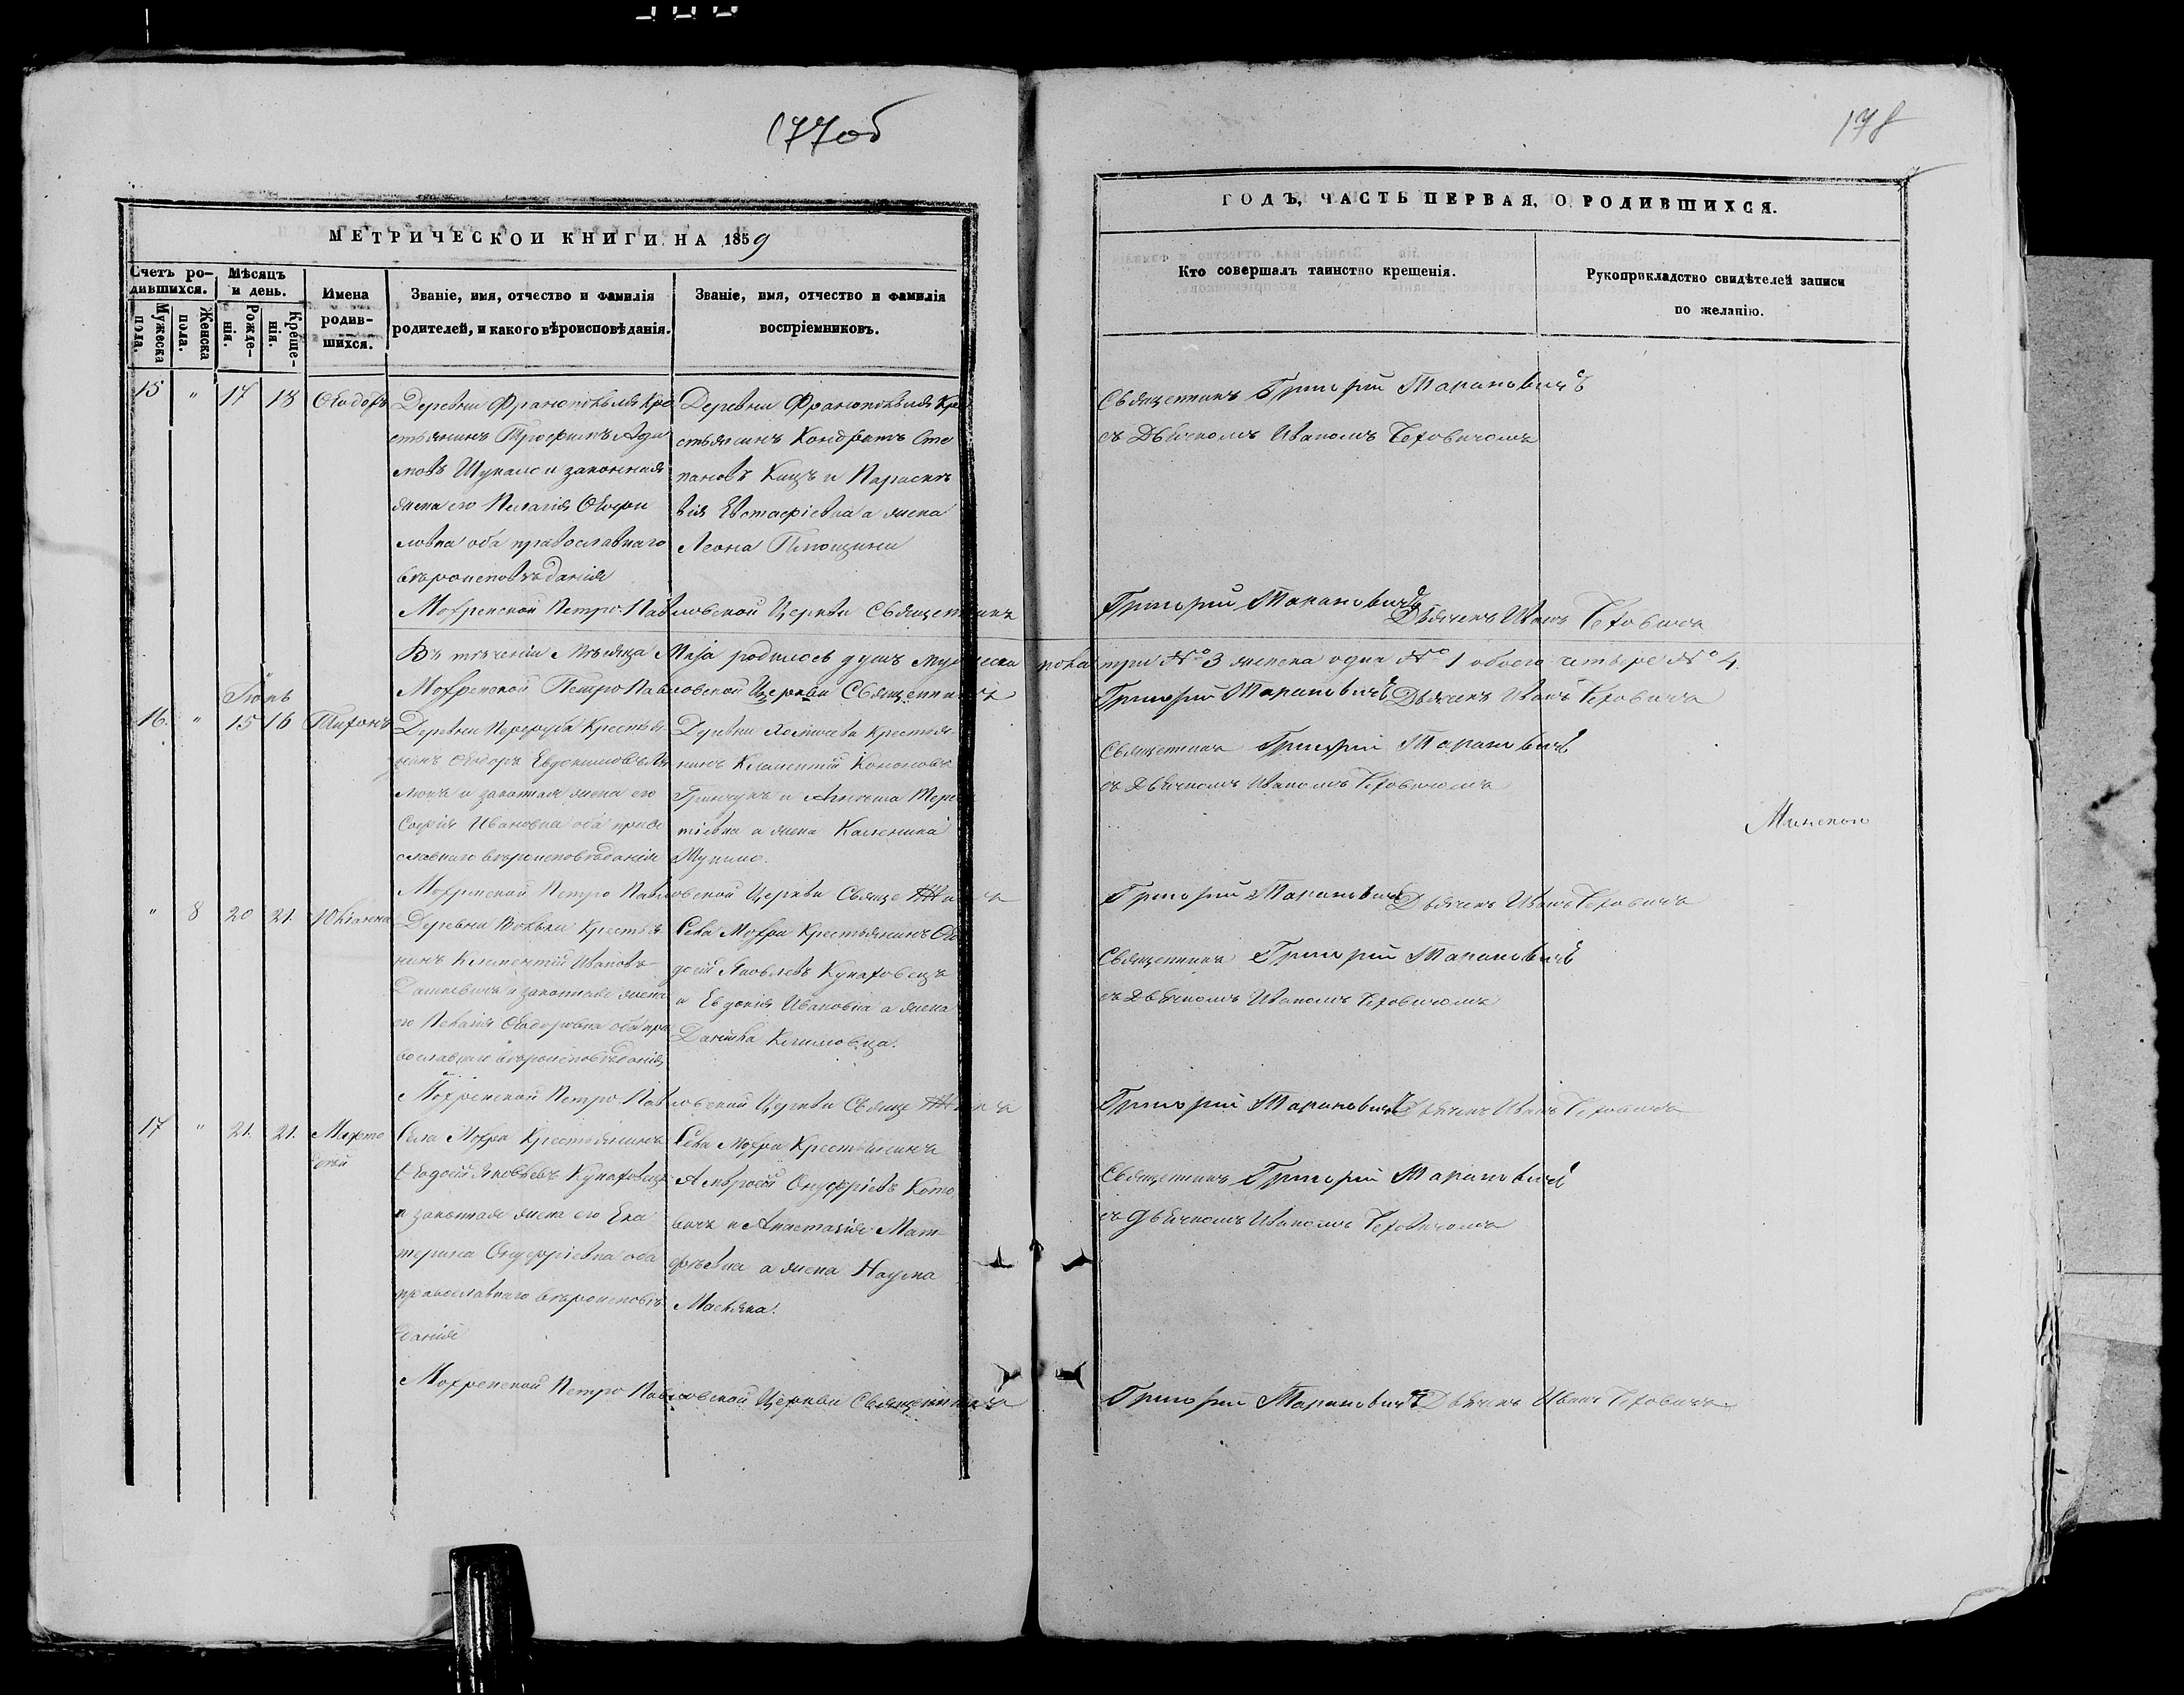 177об
178
МЕТРИЧЕСКОЙ КНИГИ НА 1859
ГОДЪ, ЧАСТЬ ПЕРВАЯ, О РОДИВШИХСЯ.
Счетъ родившихся.
Мужеска пола.
Женска пола.
Мѣсяцъ и день.
Рожденія.
Крещенія.
Имена родившихся.
Званіе, имя, отчество и фамилія
родителей, и какого вѣроисповѣданія.
Званіе, имя, отчество и фамилія
воспріемниковъ.
Кто совершалъ таинство крещенія.
Рукоприкладство свидѣтелей записи
по желанію.
15 " 17 18 Ѳеодоръ
Деревни Франополья Кре
стьянинъ Трофимъ Ада
мовъ Шукало и законная
жена его Пелагія
ловна оба православнаго
вѣроисповѣданія
Деревни Франополья Кре
стьянинъ Кондратъ Сте
пановъ Кацъ и Параске
вія Евстафіевна а жена
Леона
Священникъ Григорій Тарановичъ
съ Дьячкомъ Иваномъ
Мохренской Петро-Павловской Церкви Священникъ Григорій Тарановичъ Дьячекъ Иванъ
Въ теченіи Мѣсяца Маія родилось душъ мужеска пола три № 3 женска одна № 1 обоего четыре № 4.
Мохренской Петро-Павловской Церкви Священникъ Григорій Тарановичъ Дьячекъ Иванъ
Іюнь
16 " 15 16 Тихонъ
Деревни Крестья
нинъ Ѳеодоръ Евдокимовъ
и законная жена его
Софія Ивановна оба право
славнаго вѣроисповѣданія
Деревни Крестья
нинъ Климентій Кононовъ
Гринчукъ и Тере
нтіевна а жена Калиника
Шукало.
Священникъ Григорій Тарановичъ
съ Дьячкомъ Иваномъ
Минской
Мохренской Петро-Павловской Церкви Священникъ Григорій Тарановичъ Дьячекъ Иванъ
" 8 20 21. Юліанна
Деревни Крестья
нинъ Климентій Ивановъ
Дашкевичъ и законная жена
его Ѳеодоровна оба пра
вославнаго вѣроисповѣданія
Села Мохра Крестьянинъ Ѳео
досій Яковлевъ Кунаховецъ
и Евдокія Ивановна а жена
Климовца.
Священникъ Григорій Тарановичъ
съ Дьячкомъ Иваномъ
Мохренской Петро-Павловской Церкви Священникъ Григорій Тарановичъ Дьячекъ Иванъ
17 " 21. 21.
Села Мохра Крестьянинъ
Ѳеодосій Яковлевъ Кунаховецъ
и законная жена его Ека
терина Онуфріевна оба
православнаго вѣроисповѣ
данія
Села Мохра Крестьянинъ
Амвросій Онуфріевъ Кото
вичъ и Анастасія Мат
фѣевна а жена Наума
Священникъ Григорій Тарановичъ
съ Дьячкомъ Иваномъ
Мохренской Петро-Павловской Церкви Священникъ Григорій Тарановичъ Дьячекъ Иванъ